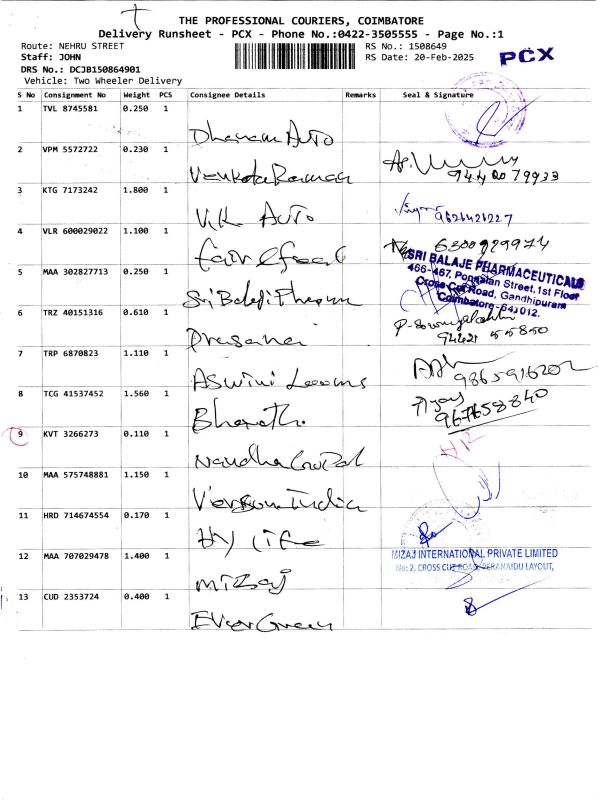 THE PROFESSIONAL COURIERS, COIMBATORE
Delivery Runsheet - PCX - Phone No.:0422-3505555 - Page No.:1
Route: NEHRU STREET
RS No.: 1508649
Staff: JOHN
RS Date: 20-Feb-2025
PCX
DRS No.: DCJB150864901
Vehicle: Two Wheeler Delivery
S No Consignment No Weight PCS Consignee Details Remarks Seal & Signature
1 TVL 8745581 0.250 1
Dhanam Auto
2 VPM 5572722 0.230 1
Venkata Raman
3 KTG 7173242 1.800 1
V.K Auto 9626426227
4 VLR 600029022 1.100 1
6300929974
5 MAA 302827713 0.250 1
Sri Balaji Pharma
SRI BALAJE PHARMACEUTICALS
466-467, Ponnaian Street, 1st Floor
Cross Cut Road, Gandhipuram
Coimbatore - 641012.
6 TRZ 40151316 0.610 1
Prasanai
94421 55850
7 TRP 6870823 1.110 1
Aswini Looms 9865916202
8 TCG 41537452 1.560 1
Bharath. 967658840
9 KVT 3266273 0.110 1
Nandha Gopal
10 MAA 575748881 1.150 1
Version India
11 HRD 714674554 0.170 1
Hy Life
12 MAA 707029478 1.400 1
Mizaj
MIZAJ INTERNATIONAL PRIVATE LIMITED
No: 2, CROSS CUT ROAD, PERANAIDU LAYOUT,
13 CUD 2353724 0.400 1
Ever Green